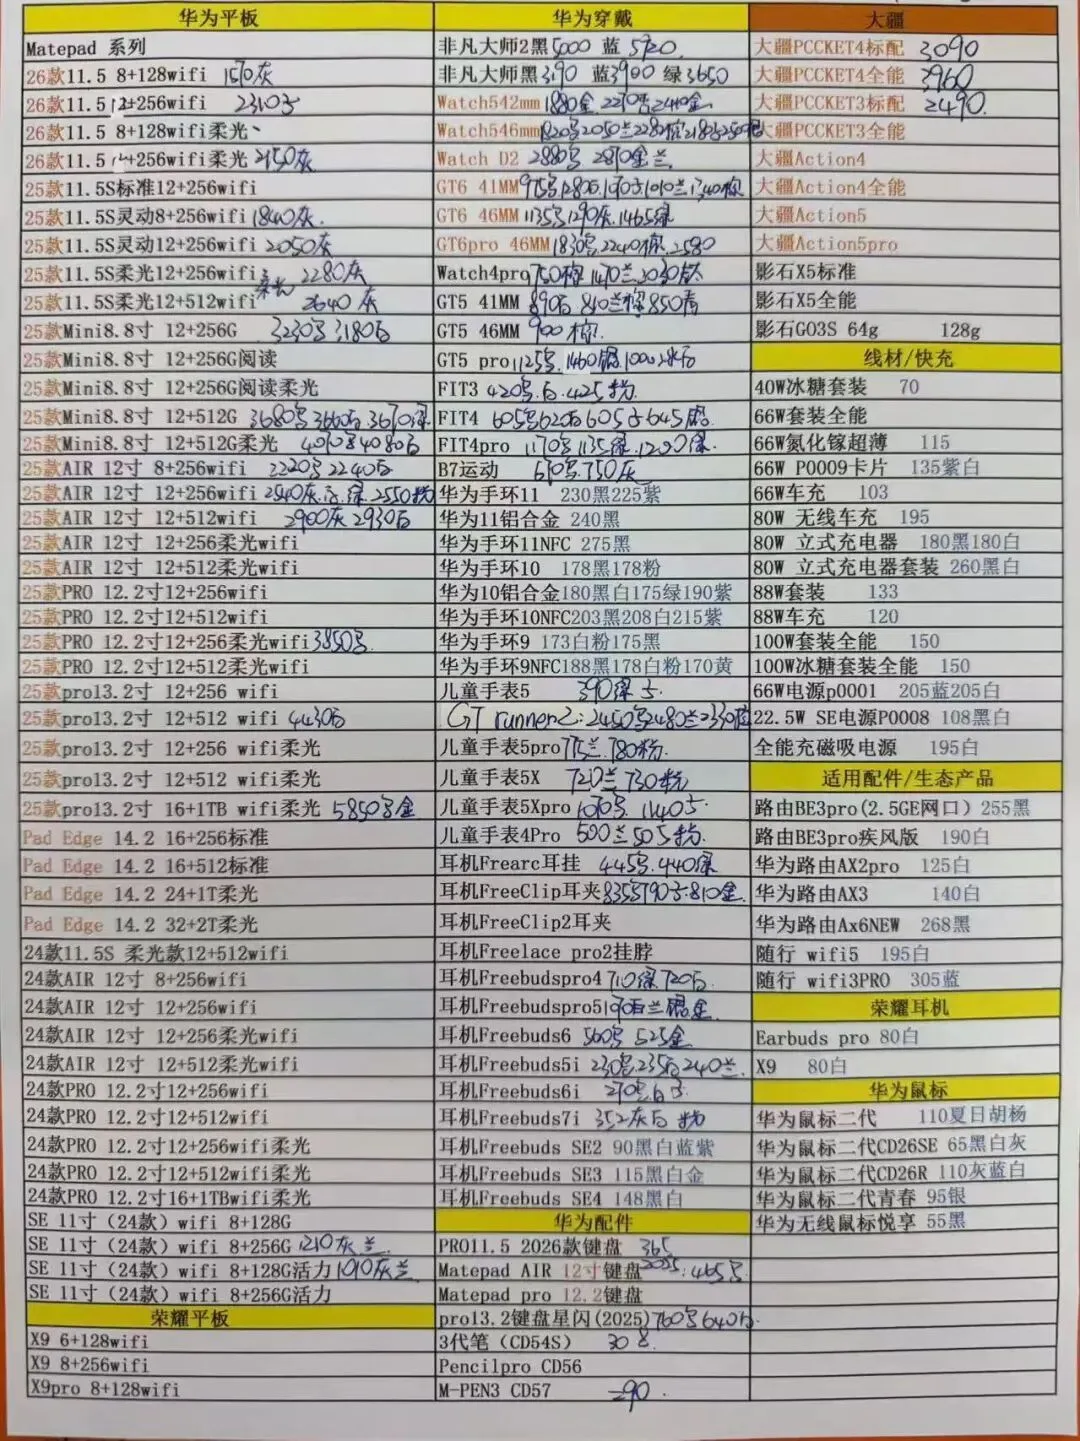 华为平板
Matepad 系列
26款11.5 8+128wifi 1570灰
26款11.5 12+256wifi
26款11.5 8+128wifi柔光
26款11.5 +256wifi柔光 2150灰
25款11.5S标准12+256wifi
25款11.5S灵动8+256wifi 1840灰.
25款11.5S灵动12+256wifi 2050灰
25款11.5S柔光12+256wifi 柔光 2280灰
25款11.5S柔光12+512wifi 2640灰
25款Mini8.8寸 12+256G 3230 3180白
25款Mini8.8寸 12+256G阅读
25款Mini8.8寸 12+256G阅读柔光
25款Mini8.8寸 12+512G 3680 3660白 3670绿
25款Mini8.8寸 12+512G柔光 4080白
25款AIR 12寸 8+256wifi 2220 2240白
25款AIR 12寸 12+256wifi 2540灰 2550粉
25款AIR 12寸 12+512wifi 2900灰 2930白
25款AIR 12寸 12+256柔光wifi
25款AIR 12寸 12+512柔光wifi
25款PRO 12.2寸12+256wifi
25款PRO 12.2寸12+512wifi
25款PRO 12.2寸12+256柔光wifi 3850
25款PRO 12.2寸12+512柔光wifi
25款pro13.2寸 12+256 wifi
25款pro13.2寸 12+512 wifi 4430白
25款pro13.2寸 12+256 wifi柔光
25款pro13.2寸 12+512 wifi柔光
25款pro13.2寸 16+1TB wifi柔光 5850 金
Pad Edge 14.2 16+256标准
Pad Edge 14.2 16+512标准
Pad Edge 14.2 24+1T柔光
Pad Edge 14.2 32+2T柔光
24款11.5S 柔光款12+512wifi
24款AIR 12寸 8+256wifi
24款AIR 12寸 12+256wifi
24款AIR 12寸 12+256柔光wifi
24款AIR 12寸 12+512柔光wifi
24款PRO 12.2寸12+256wifi
24款PRO 12.2寸12+512wifi
24款PRO 12.2寸12+256wifi柔光
24款PRO 12.2寸12+512wifi柔光
24款PRO 12.2寸16+1TBwifi柔光
SE 11寸（24款）wifi 8+128G
SE 11寸（24款）wifi 8+256G 1210灰兰
SE 11寸（24款）wifi 8+128G活力 1010灰兰
SE 11寸（24款）wifi 8+256G活力
荣耀平板
X9 6+128wifi
X9 8+256wifi
X9pro 8+128wifi
华为穿戴
非凡大师2黑5000 蓝 5920.
非凡大师黑3190 蓝3900 绿3650
Watch542mm 1880金
Watch546mm
Watch D2 2880
GT6 41MM
GT6 46MM 1135 1290灰.1465绿
GT6pro 46MM 1830 2240棕.2580
Watch4pro 750棕 1470兰
GT5 41MM 890白 810兰棕850青
GT5 46MM 900 棕.
GT5 pro 1125
FIT3 420 白.425粉.
FIT4 605 620白605
FIT4pro 1170 1135绿.1200绿.
B7运动 750灰
华为手环11 230黑225紫
华为11铝合金 240黑
华为手环11NFC 275黑
华为手环10 178黑178粉
华为10铝合金180黑白175绿190紫
华为手环10NFC203黑208白215紫
华为手环9 173白粉175黑
华为手环9NFC188黑178白粉170黄
儿童手表5 390绿
GT runner2: 2450 2480兰
儿童手表5pro 775兰.780粉.
儿童手表5X 720兰 730粉
儿童手表5Xpro 1140
儿童手表4Pro 500兰505粉.
耳机Frearc耳挂 445 .440绿
耳机FreeClip耳夹 835 810金.
耳机FreeClip2耳夹
耳机Freelace pro2挂脖
耳机Freebudspro4 710绿.720白.
耳机Freebudspro5
耳机Freebuds6 560 525金
耳机Freebuds5i 230 .235白240兰.
耳机Freebuds6i 270
耳机Freebuds7i 352灰白 粉
耳机Freebuds SE2 90黑白蓝紫
耳机Freebuds SE3 115黑白金
耳机Freebuds SE4 148黑白
华为配件
PRO11.5 2026款键盘 365
Matepad AIR 12寸键盘 2025:465
Matepad pro 12.2键盘
pro13.2键盘星闪(2025) 760 640白.
3代笔（CD54S）
Pencilpro CD56
M-PEN3 CD57 290.
大疆
大疆PCCKET4标配 3090
大疆PCCKET4全能 3960
大疆PCCKET3标配 2490.
大疆PCCKET3全能
大疆Action4
大疆Action4全能
大疆Action5
大疆Action5pro
影石X5标准
影石X5全能
影石GO3S 64g 128g
线材/快充
40W冰糖套装 70
66W套装全能
66W氮化镓超薄 115
66W P0009卡片 135紫白
66W车充 103
80W 无线车充 195
80W 立式充电器 180黑180白
80W 立式充电器套装 260黑白
88W套装 133
88W车充 120
100W套装全能 150
100W冰糖套装全能 150
66W电源p0001 205蓝205白
22.5W SE电源P0008 108黑白
全能充磁吸电源 195白
适用配件/生态产品
路由BE3pro(2.5GE网口）255黑
路由BE3pro疾风版 190白
华为路由AX2pro 125白
华为路由AX3 140白
华为路由Ax6NEW 268黑
随行 wifi5 195白
随行 wifi3PRO 305蓝
荣耀耳机
Earbuds pro 80白
X9 80白
华为鼠标
华为鼠标二代 110夏日胡杨
华为鼠标二代CD26SE 65黑白灰
华为鼠标二代CD26R 110灰蓝白
华为鼠标二代青春 95银
华为无线鼠标悦享 55黑